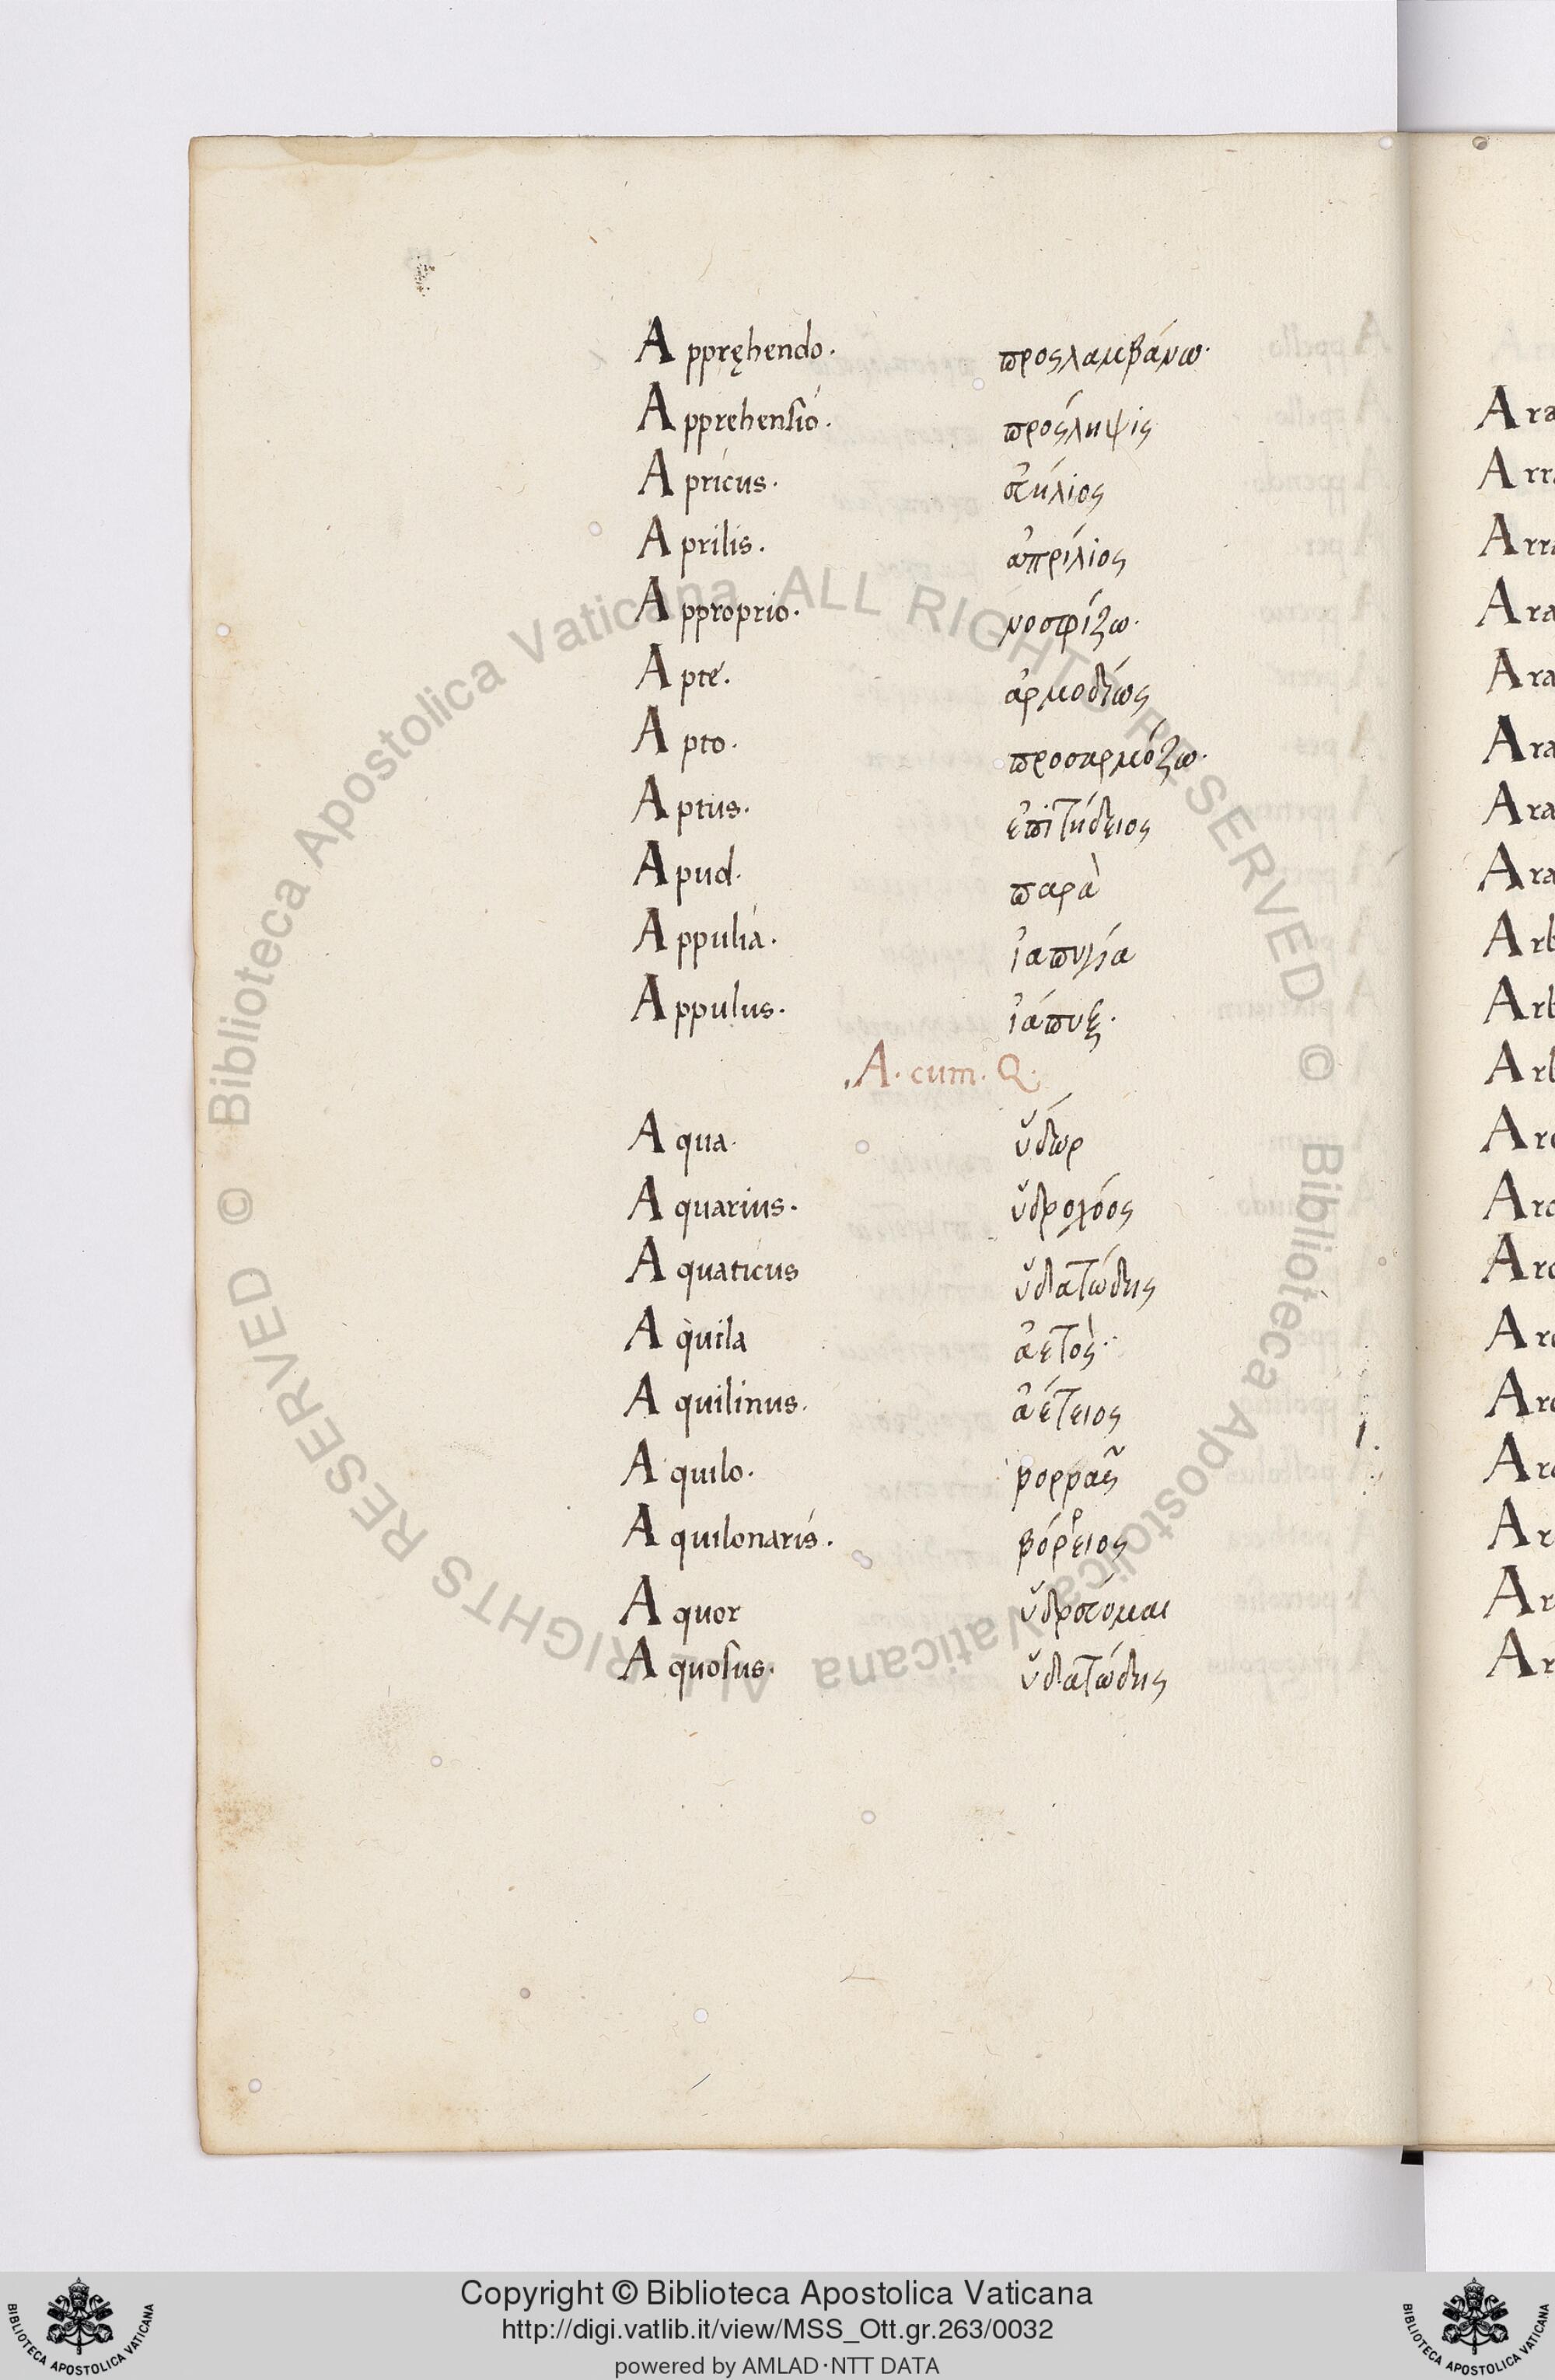 Appręhendo. προςλαμβάνω·
Apprehensio. πρόςληψις
Apricus. εὐήλιος
Aprilis. ἀπρίλιος
Approprio. νοσφίζω·
Apte. ἁρμοδίως
Apto. προσαρμόζω·
Aptus. ἐπιτήδειος
Apud. παρὰ
Appulia. ἰαπυγία
Appulus. ἰάπυξ·
A. cum. Q.
Aqua. ὕδωρ
Aquarius. ὑδροχόος
Aquaticus ὑδατώδης
Aquila ἀετὸς·
Aquilinus. ἀέτειος
Aquilo. βορρᾶς
Aquilonaris. βόρειος
Aquor ὑδρεύομαι
Aquosus. ὑδατώδης
© Biblioteca Apostolica Vaticana ALL RIGHTS RESERVED © Biblioteca Apostolica Vaticana ALL RIGHTS RESERVED
Copyright © Biblioteca Apostolica Vaticana
http://digi.vatlib.it/view/MSS_Ott.gr.263/0032
powered by AMLAD·NTT DATA
BIBLIOTECA APOSTOLICA VATICANA
BIBLIOTECA APOSTOLICA VATICANA